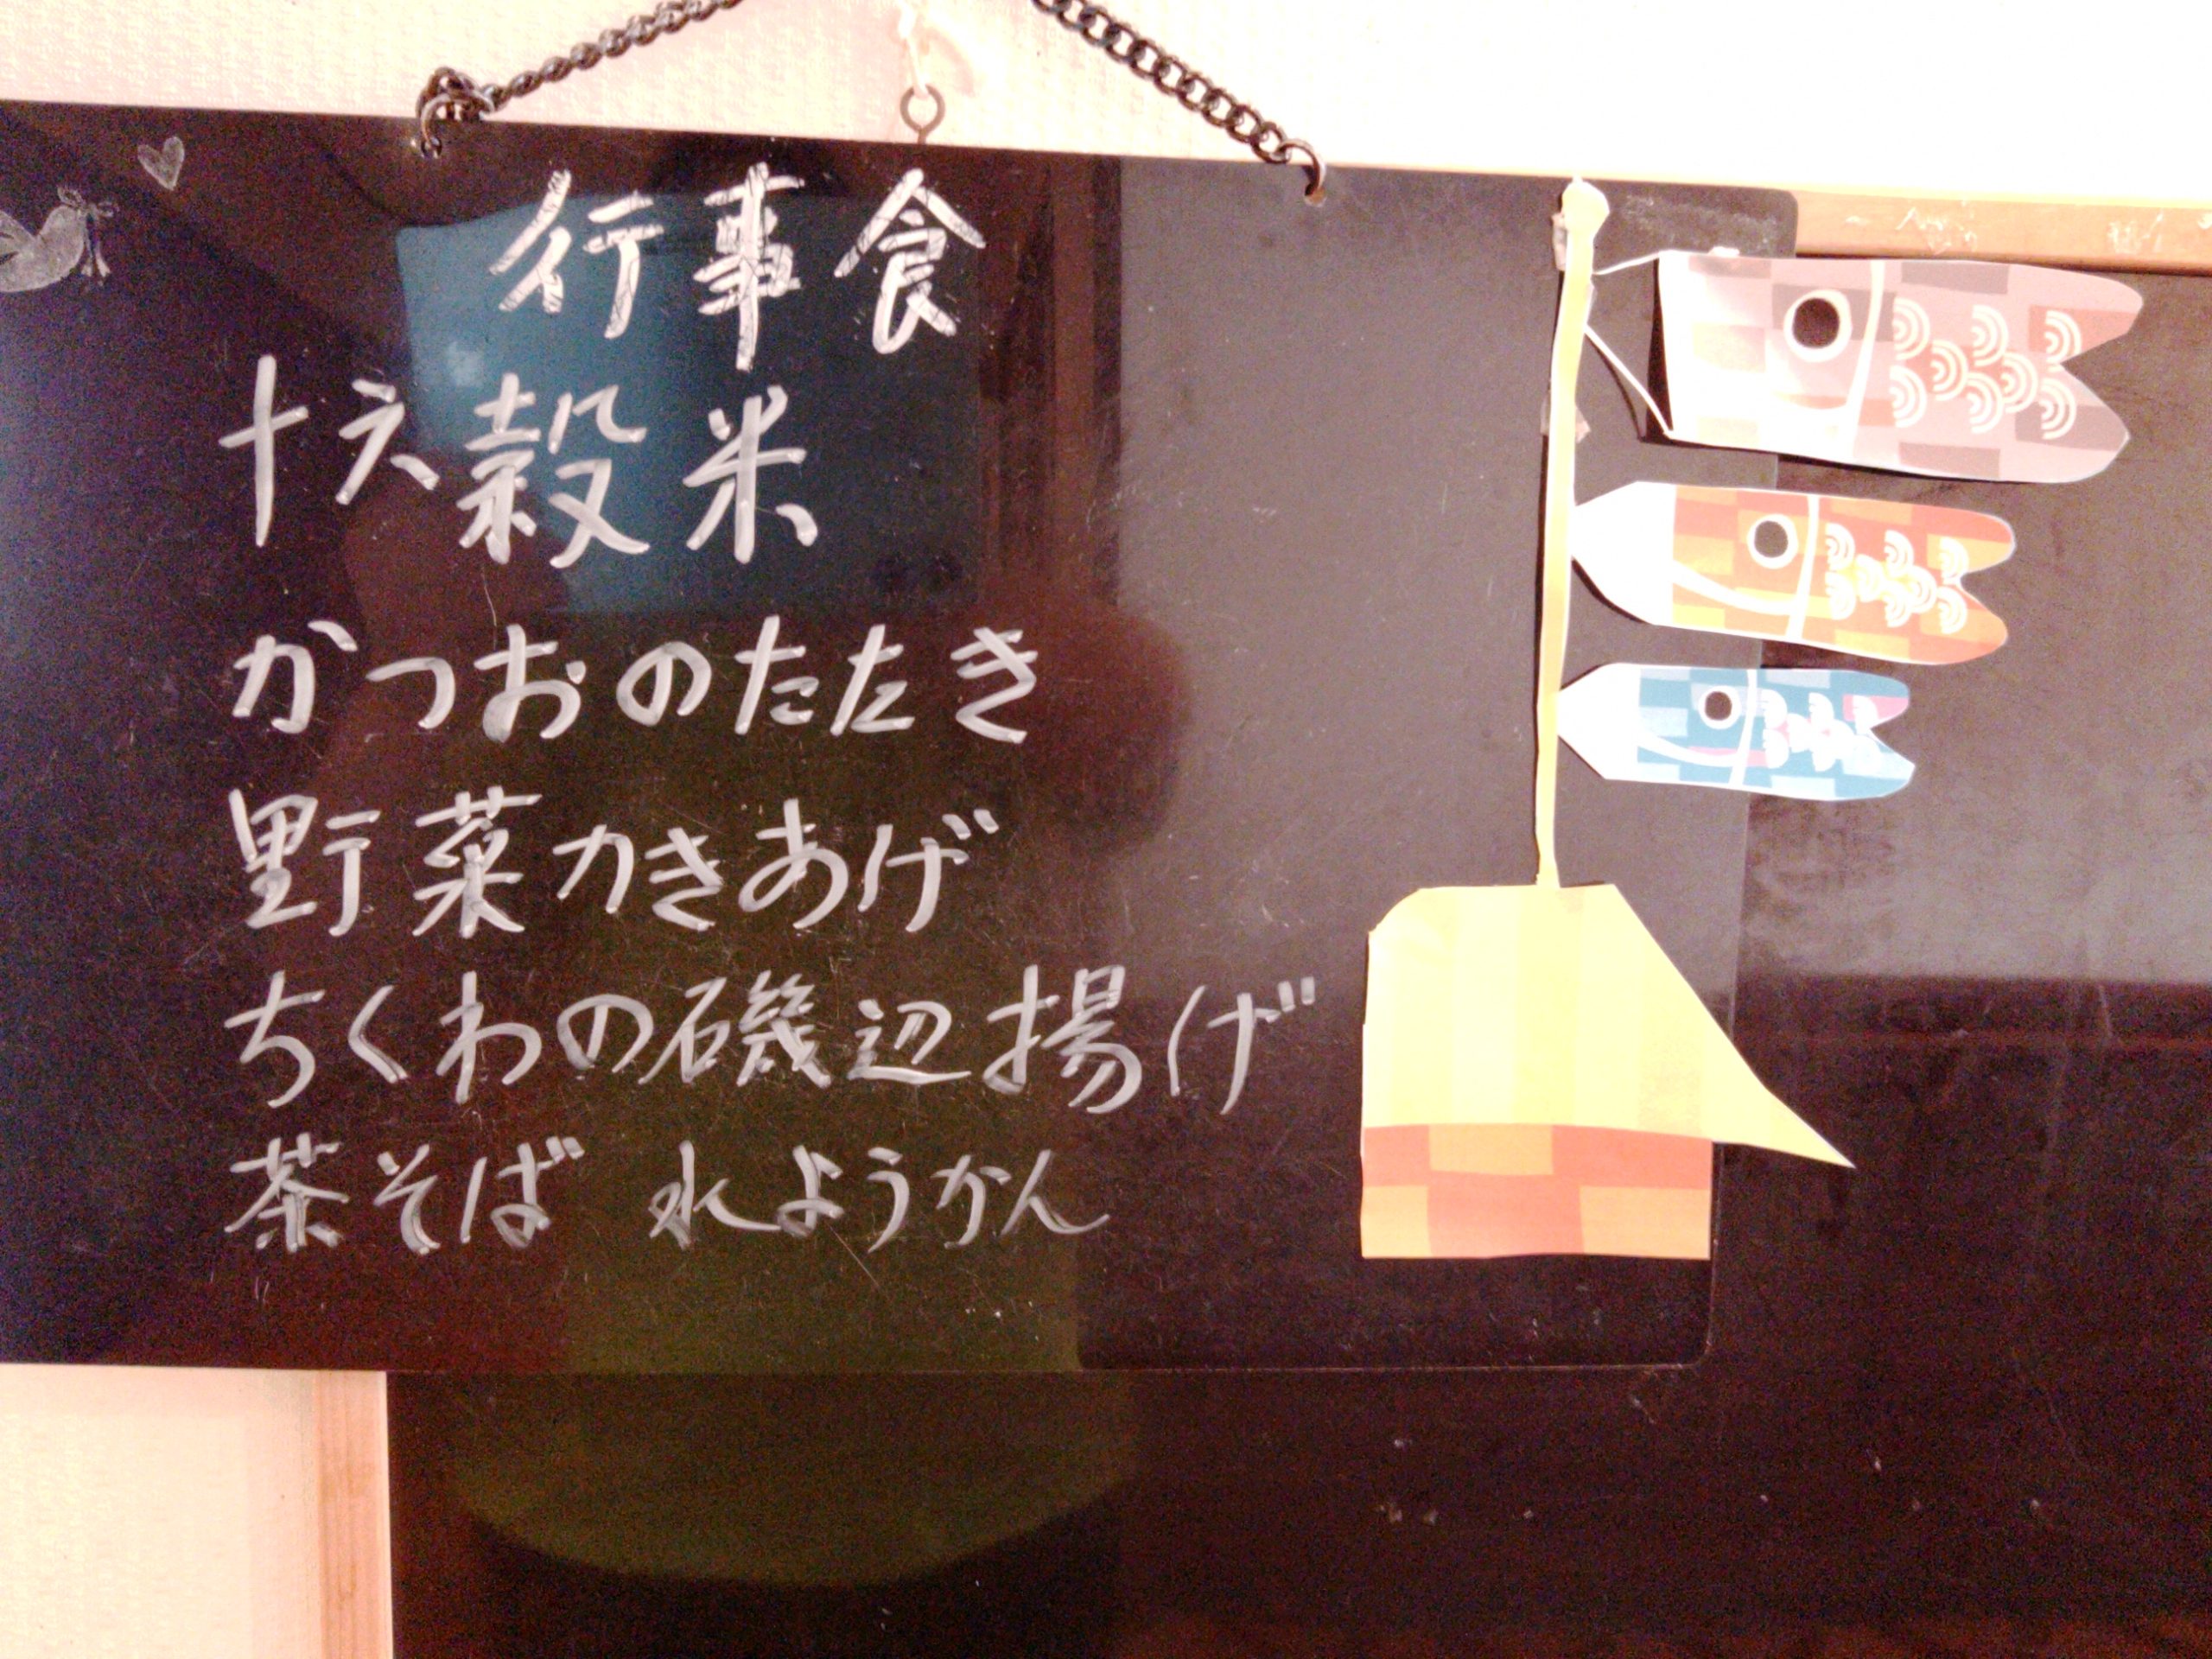 行事食
十六穀米
かつおのたたき
野菜かきあげ
ちくわの磯辺揚げ
茶そば 水ようかん